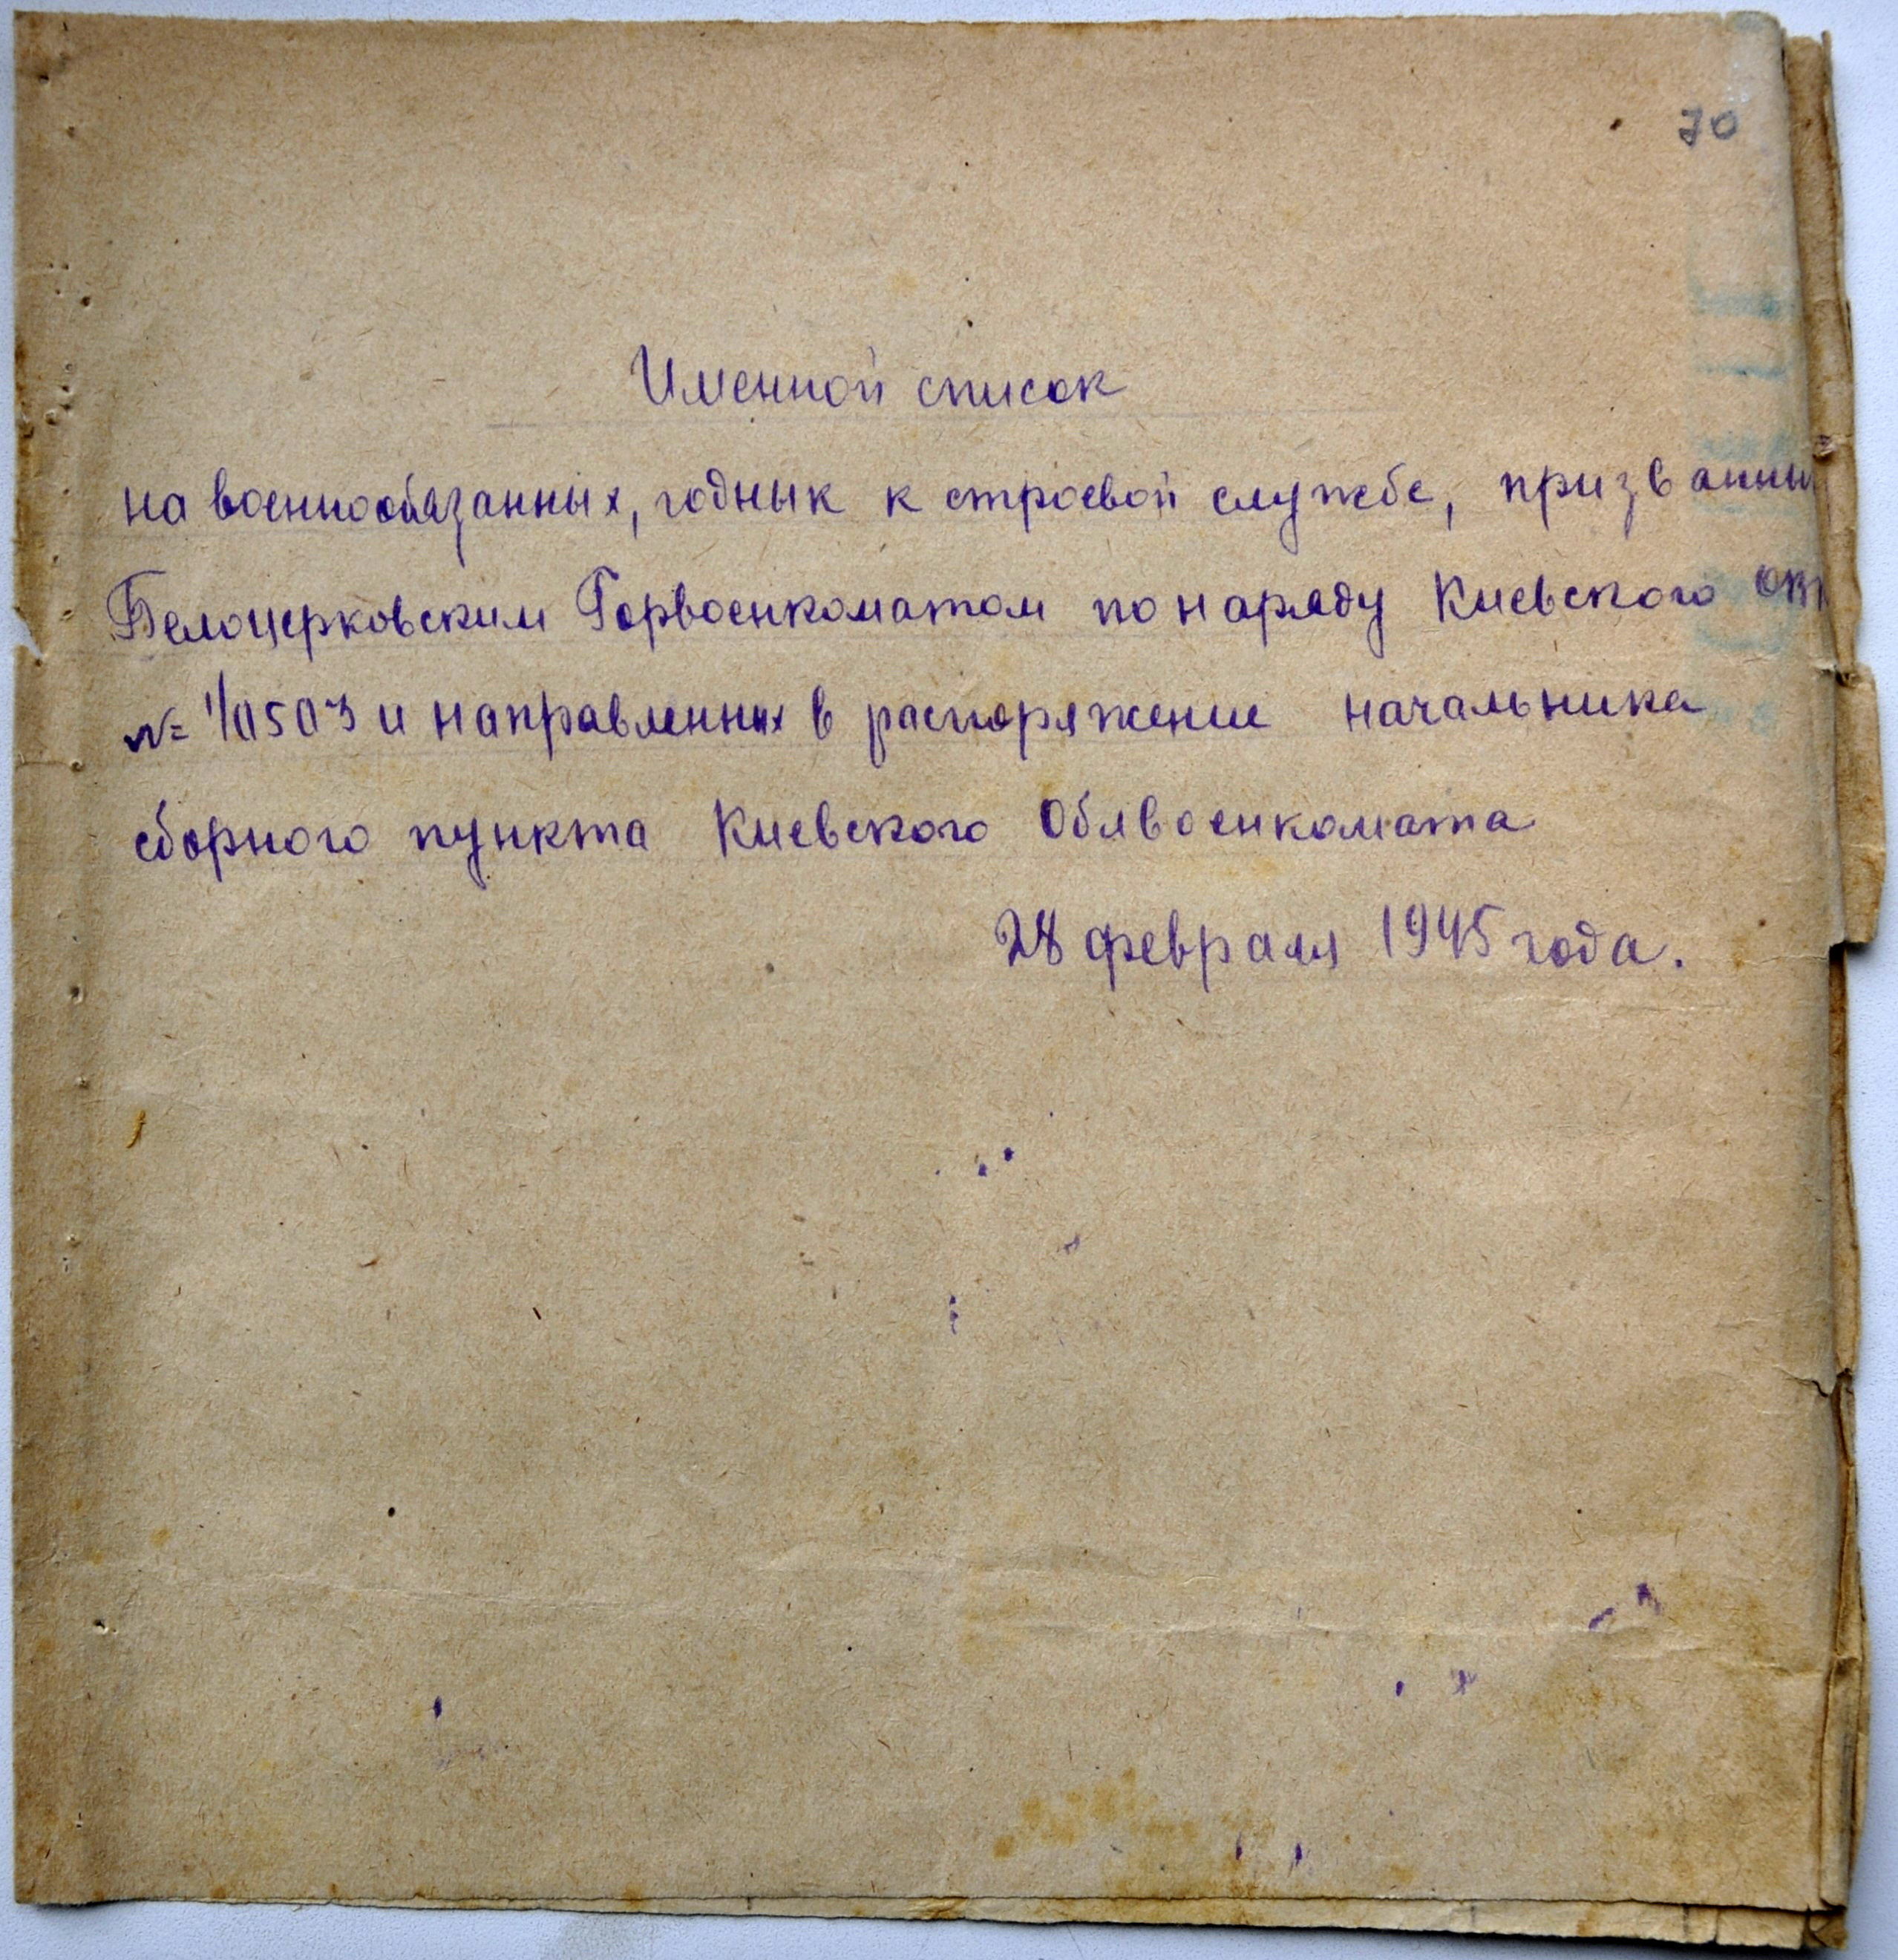 70
Именной список
на военнообязанных, годных к строевой службе,
Белоцерковским Горвоенкоматом по наряду Киевского
№ 1/0503 и направленных в распоряжение начальника
сборного пункта Киевского Облвоенкомата
28 февраля 1945 года.